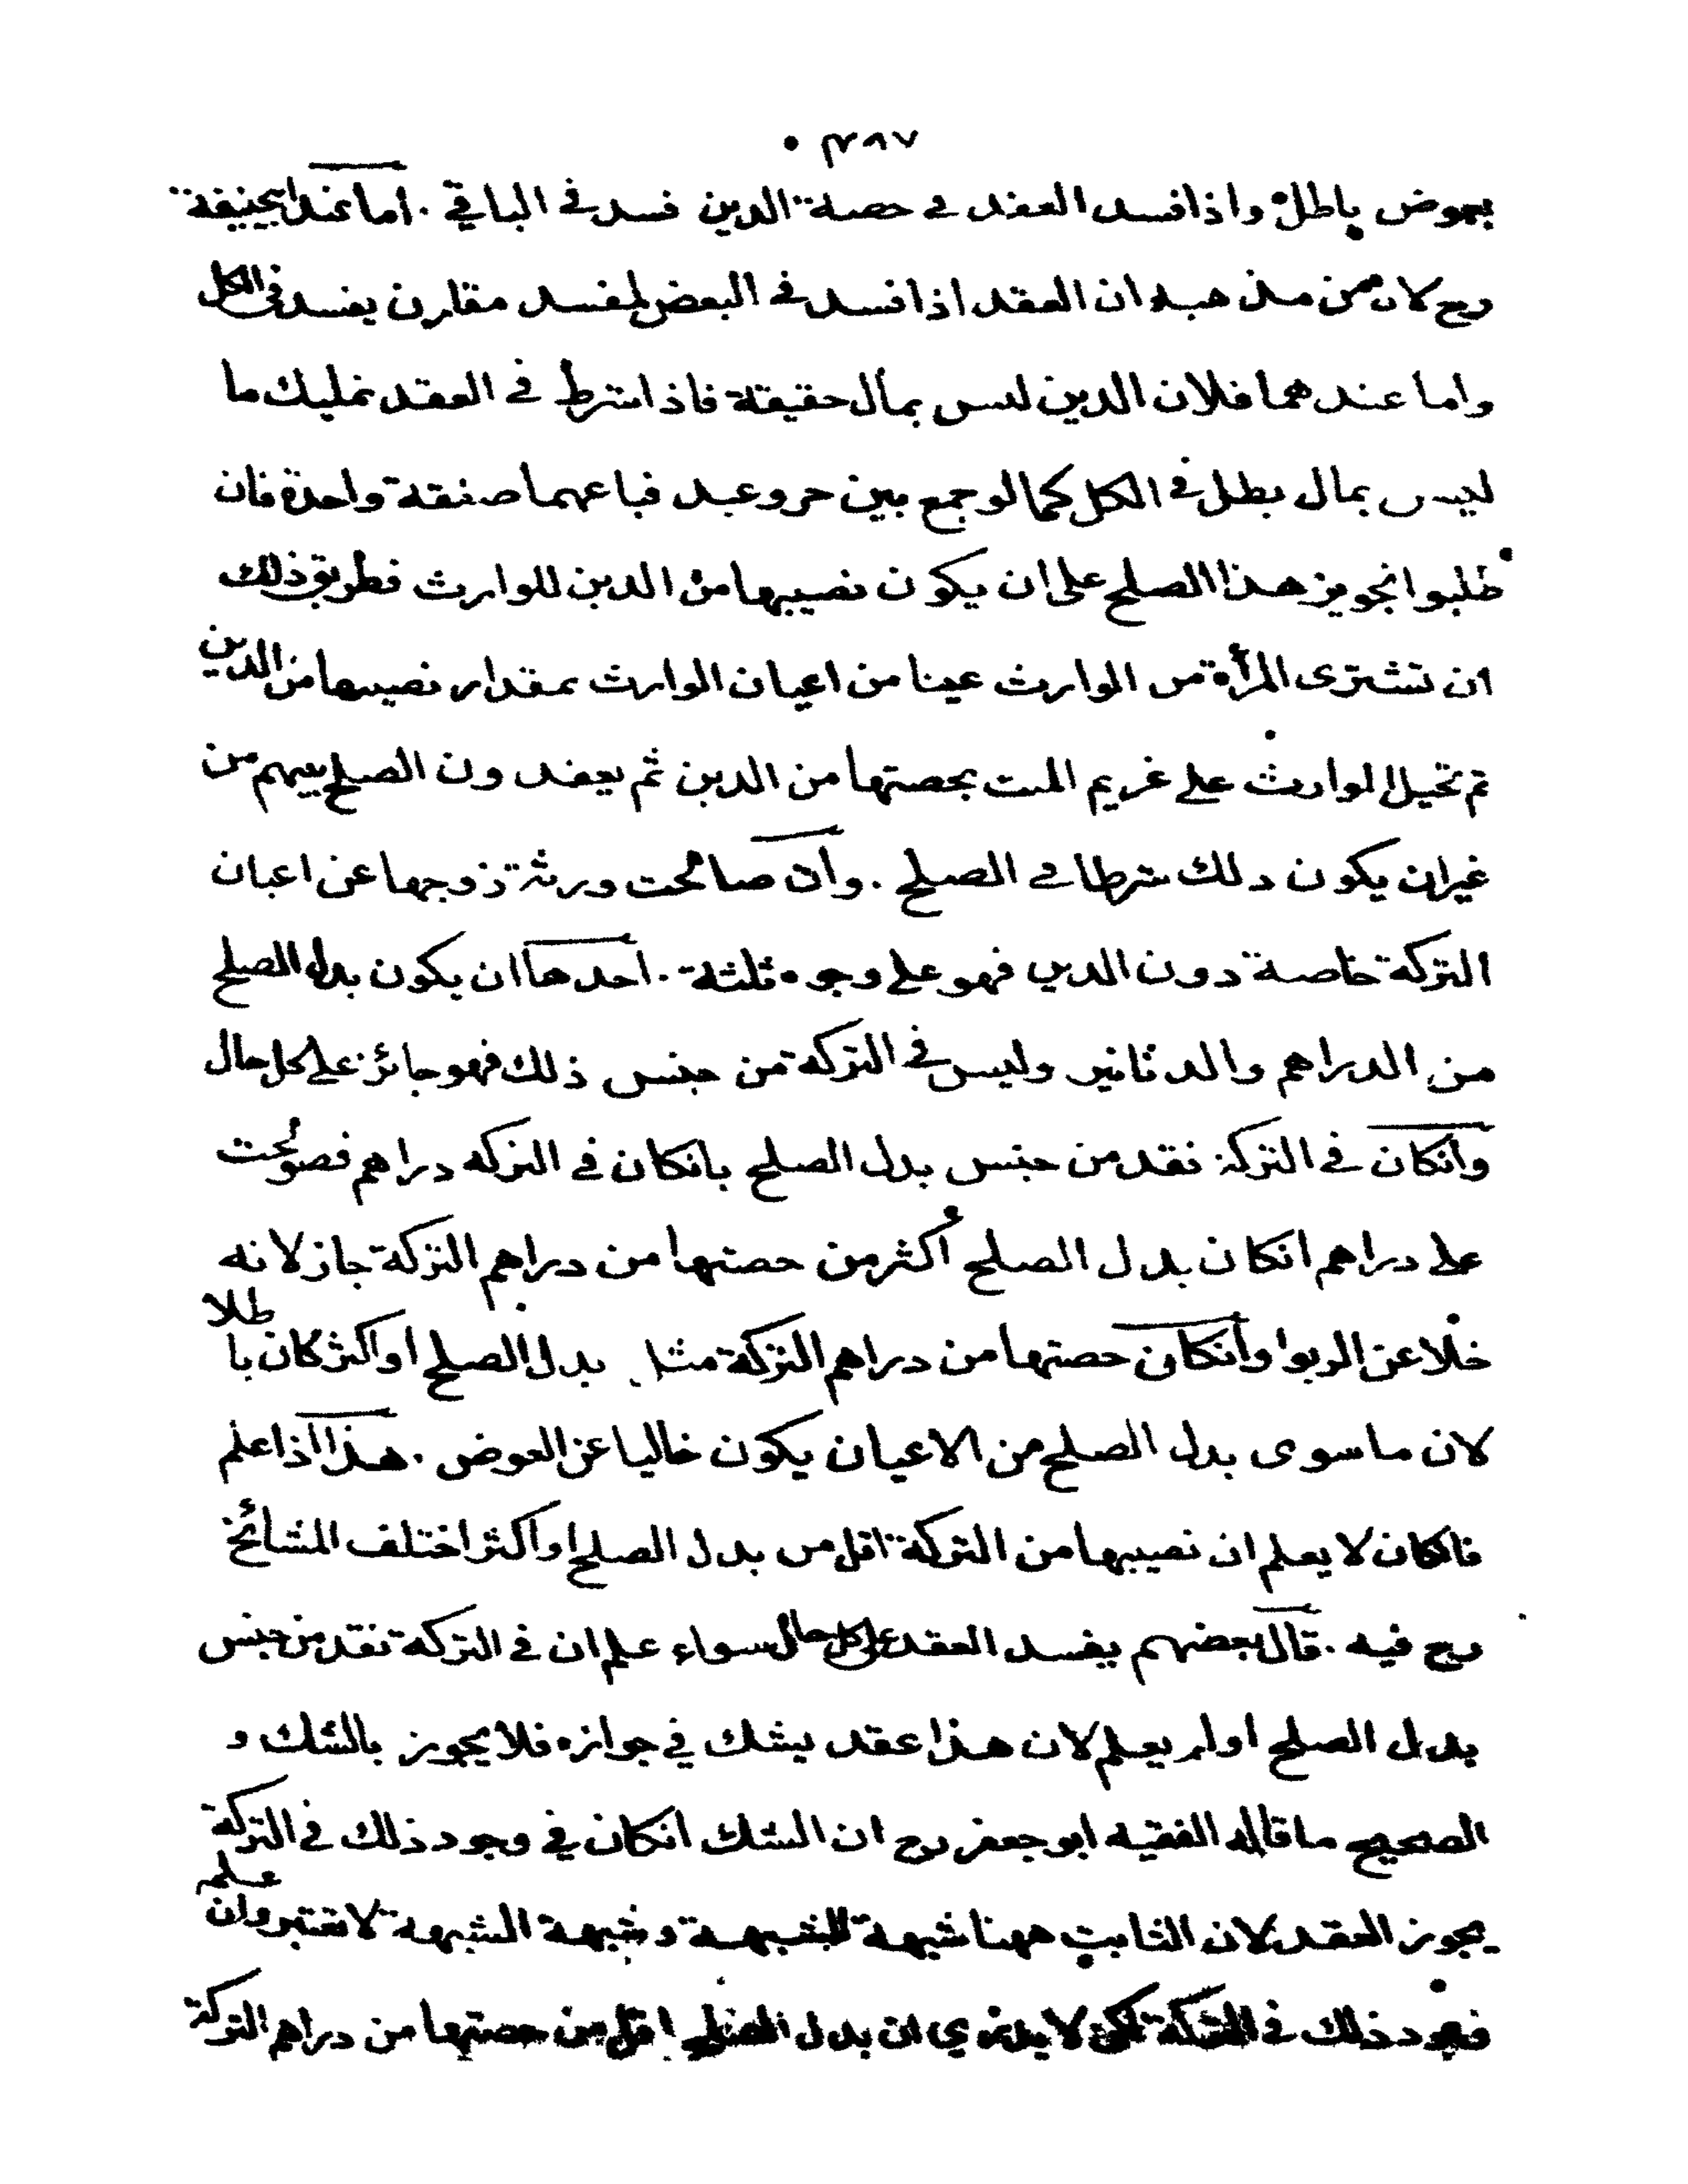 ٣٨٧
بعوض باطل واذا فسد العقد في حصة الدين فسد في الباقي . اما عند ابيحنيفة
رح لان من مذهبه ان العقد اذا فسد في البعض لمفسد مقارن يفسد في الكل
واما عندهما فلان الدين ليس بمال حقيقة فاذا شرط في العقد تمليك ما
ليس بمال بطل في الكل كما لو جمع بين حر وعبد فباعهما صفقة واحدة فان
طلبوا تجويز هذا الصلح على ان يكون نصيبها من الدين للوارث فطريق ذلك
ان تشترى المرأة من الوارث عينا من اعيان الوارث بمقدار نصيبها من الدين
ثم تحيل الوارث على غريم الميت بحصتها من الدين ثم يعقدون الصلح بينهم من
غير ان يكون ذلك شرطا في الصلح . وان صالحت ورثة زوجها عن اعيان
التركة خاصة دون الدين فهو على وجوه ثلثة . احدها ان يكون بدل الصلح
من الدراهم والدنانير وليس في التركة من جنس ذلك فهو جائز على كل حال
وانكان في التركة نقد من جنس بدل الصلح بانكان في التركه دراهم فصولحت
على دراهم انكان بدل الصلح أكثر من حصتها من دراهم التركة جاز لانه
خلا عن الربوا وانكان حصتها من دراهم التركة مثل بدل الصلح او اكثر كان باطلا
لان ما سوى بدل الصلح من الاعيان يكون خاليا عن العوض . هذا اذا علم
فانكان لا يعلم ان نصيبها من التركة اقل من بدل الصلح او اكثر اختلف المشائخ
رح فيه . قال بعضهم يفسد العقد على كل حال سواء علم ان في التركة نقد من جنس
بدل الصلح او لم يعلم لان هذا عقد يشك في جوازه فلا يجوز بالشك و
الصحيح ما قاله الفقيه ابو جعفر رح ان الشك انكان في وجود ذلك في التركة
يجوز العقد لان الثابت ههنا شبهة الشبهة وشبهة الشبهة لا تعتبر وان علم
وجود ذلك في التركة لكن لا يدري ان بدل الصلح اقل من حصتها من دراهم التركة